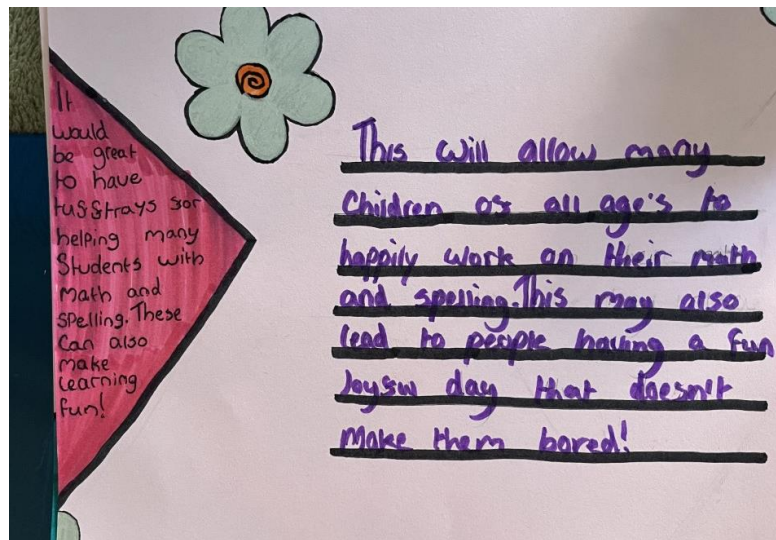 It
would
be great
to have
tuff trays for
helping many
Students with
Math and
Spelling. These
Can also
make
learning
fun!
This will allow many
Children of all age's to
happily work on their math
and spelling. This may also
lead to people having a fun
Joyful day that doesn't
Make them bored!